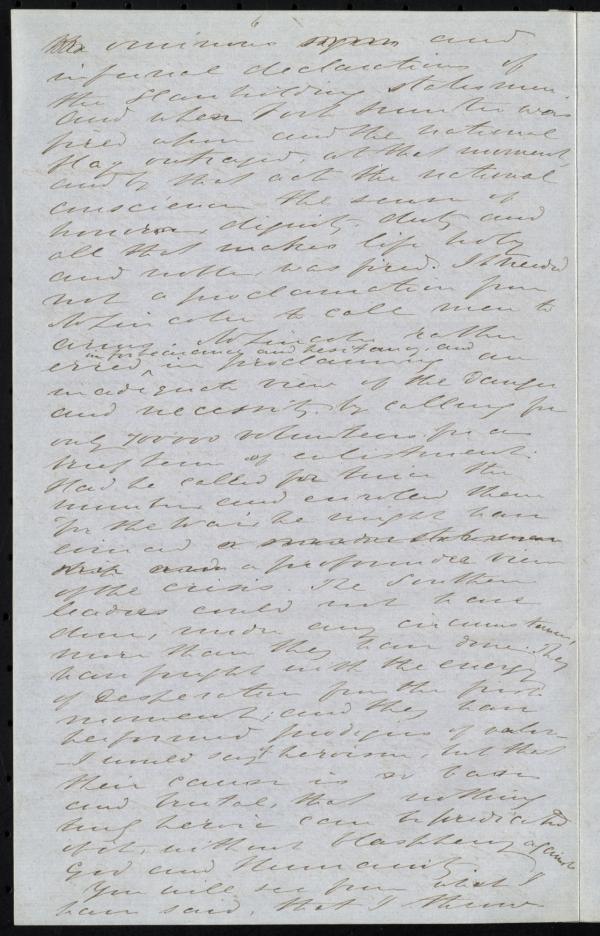 6
ominous and
infernal declarations of
the slaveholding statesmen.
And when Fort Sumter was
fired upon and the national
flag outraged, at that moment,
and by that act the national
conscience the sense of
honor, dignity, duty and
all that makes life holy
and noble, was fired. It needed
not a proclamation from
A Lincoln to call men to
arms. A Lincoln rather
in forbearancy and hesitancy and
erred in proclaiming an
inadequate view of the danger
and necessity by calling for
only 70000 volunteers for a
brief term of enlistment.
Had he called for twice the
number and enrolled them
for the war, he might have
evinced a
a profounder view
of the crisis. The Southern
leaders could not have
done, under any circumstances,
more than they have done. They
have fought with the energy
of desperation from the first
moment; and they have
performed prodigies of valor
I would say heroism, but that
their cause is so base
and brutal, that nothing
truly heroic can be predicated
of it, without blasphemy against
God and Humanity.
You will see from what I
have said, that I